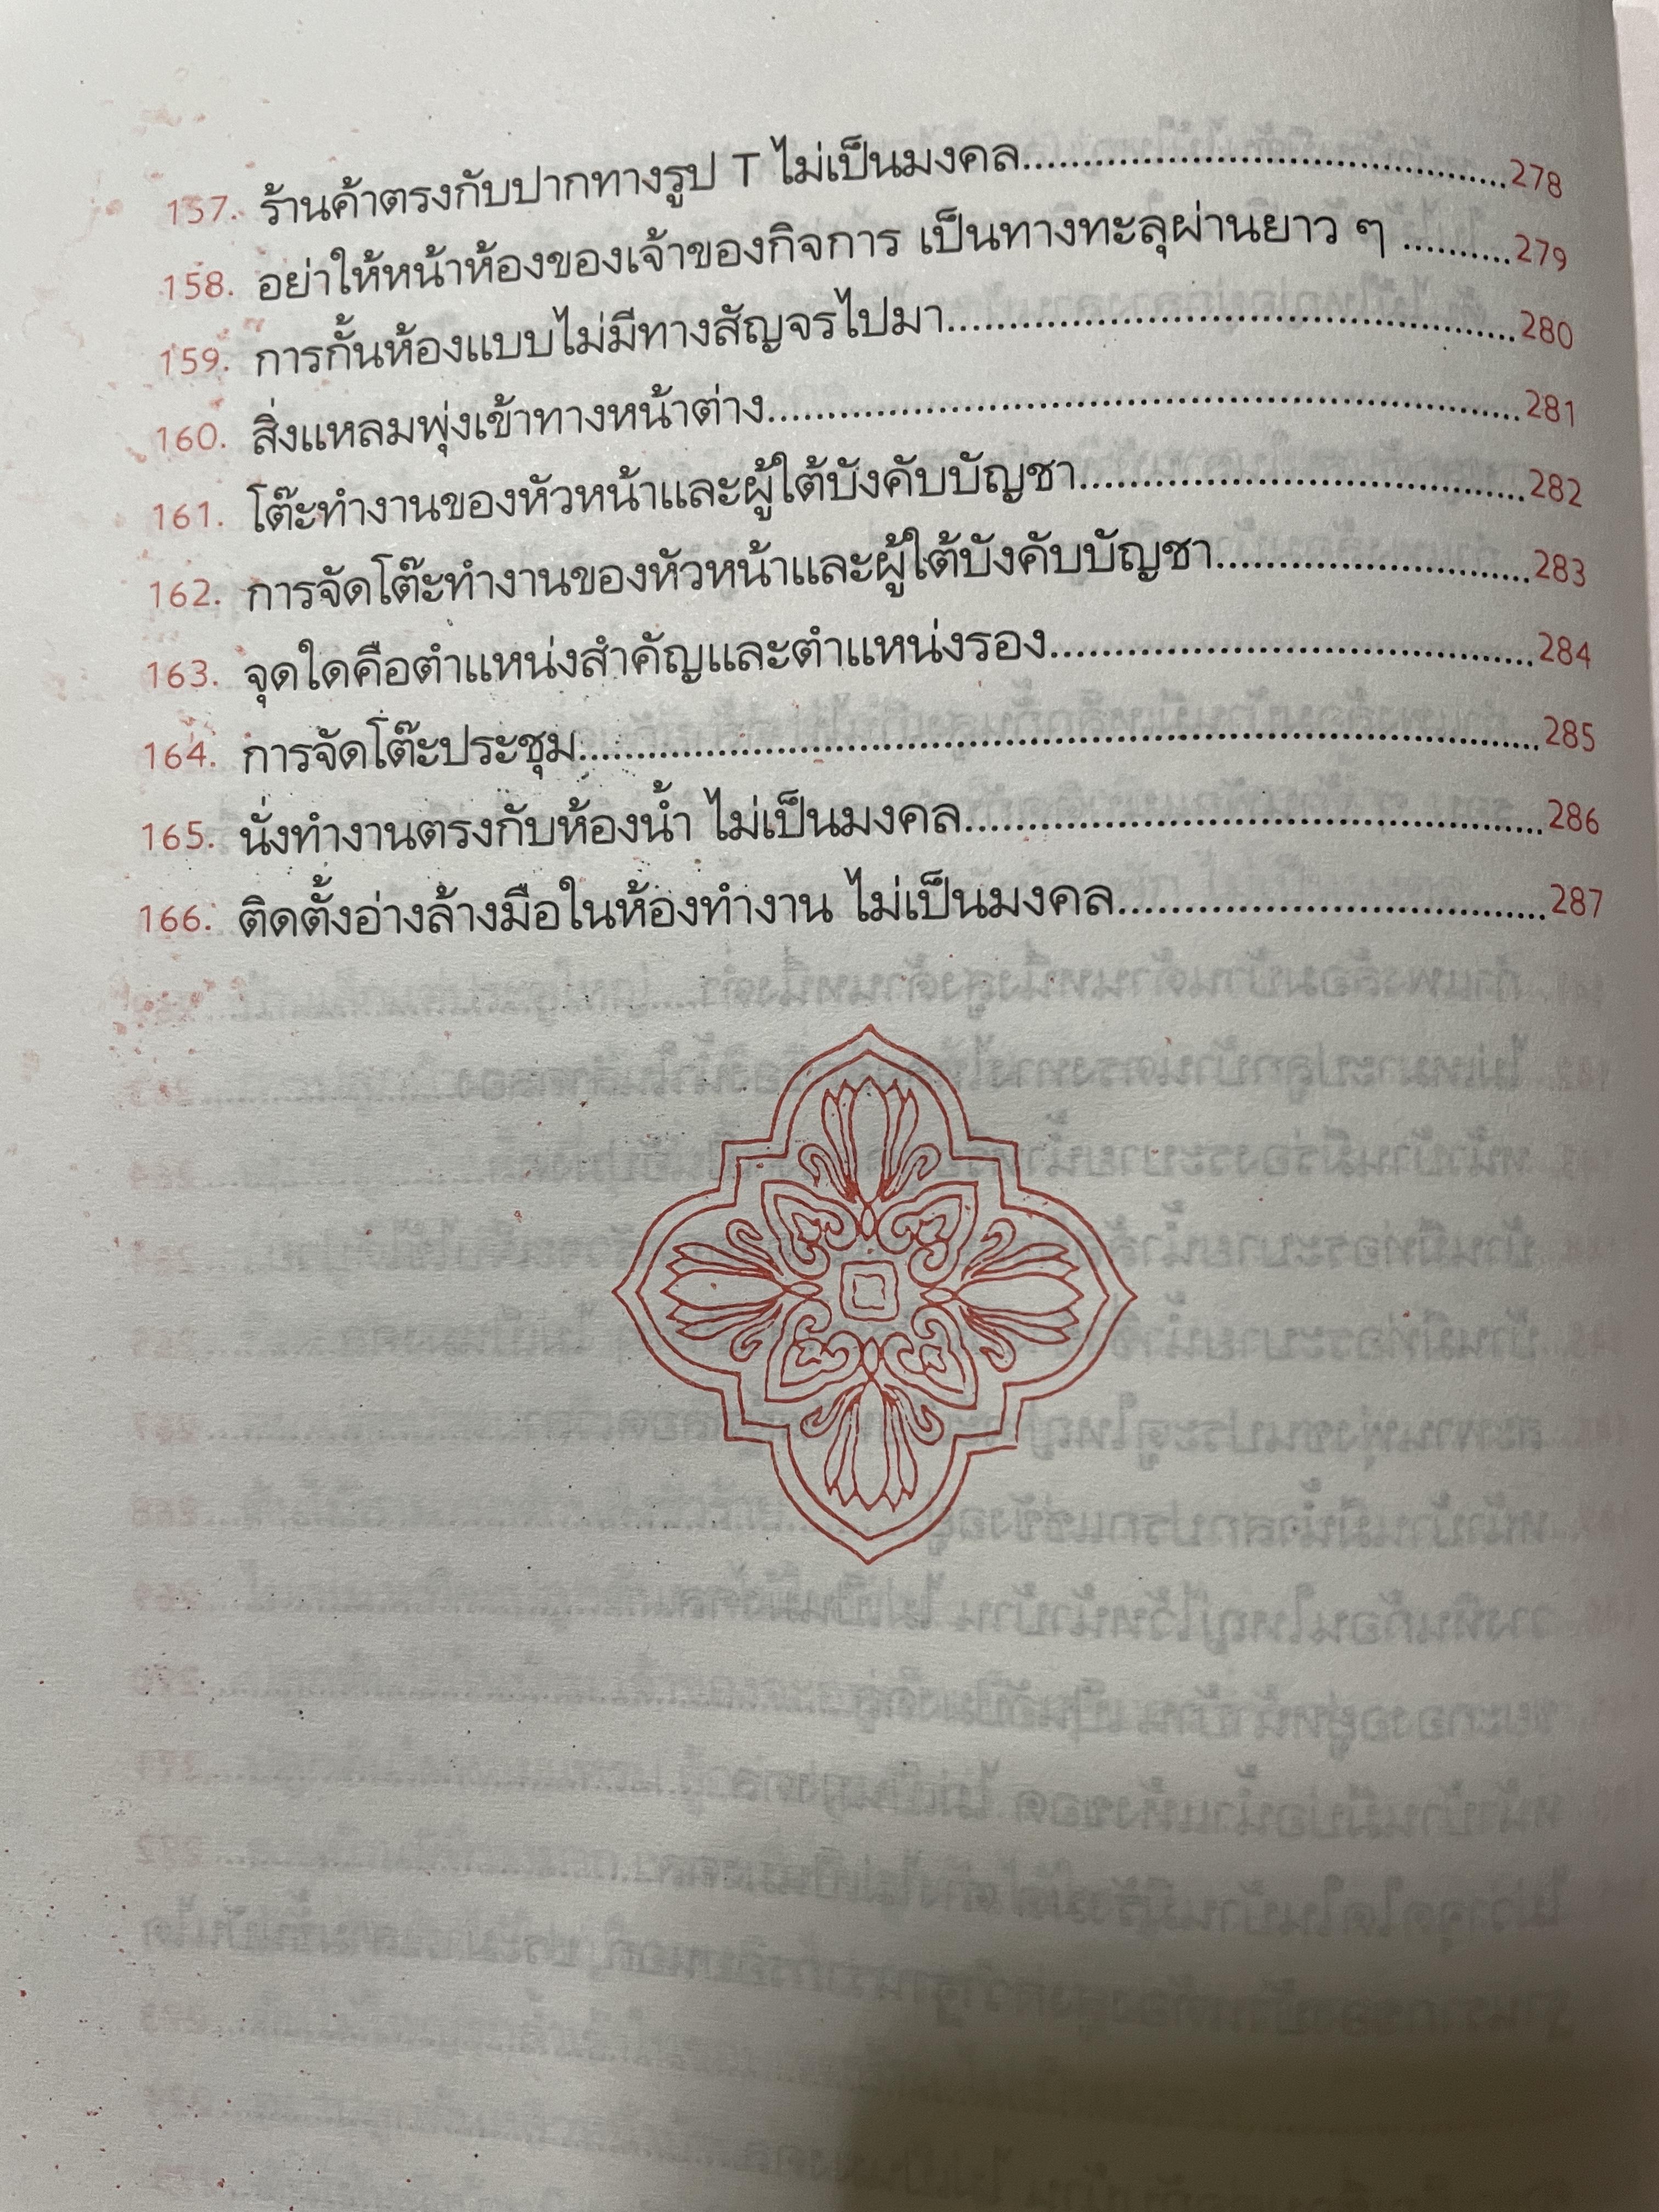 157. ร้านค้าตรงกับปากทางรูป T ไม่เป็นมงคล........................................278
158. อย่าให้หน้าห้องของเจ้าของกิจการ เป็นทางทะลุผ่านยาว ๆ ..........279
159. การกั้นห้องแบบไม่มีทางสัญจรไปมา...............................................280
160. สิ่งแหลมพุ่งเข้าทางหน้าต่าง..............................................................281
161. โต๊ะทำงานของหัวหน้าและผู้ใต้บังคับบัญชา.....................................282
162. การจัดโต๊ะทำงานของหัวหน้าและผู้ใต้บังคับบัญชา..........................283
163. จุดใดคือตำแหน่งสำคัญและตำแหน่งรอง........................................284
164. การจัดโต๊ะประชุม...............................................................................285
165. นั่งทำงานตรงกับห้องน้ำ ไม่เป็นมงคล...............................................286
166. ติดตั้งอ่างล้างมือในห้องทำงาน ไม่เป็นมงคล...................................287